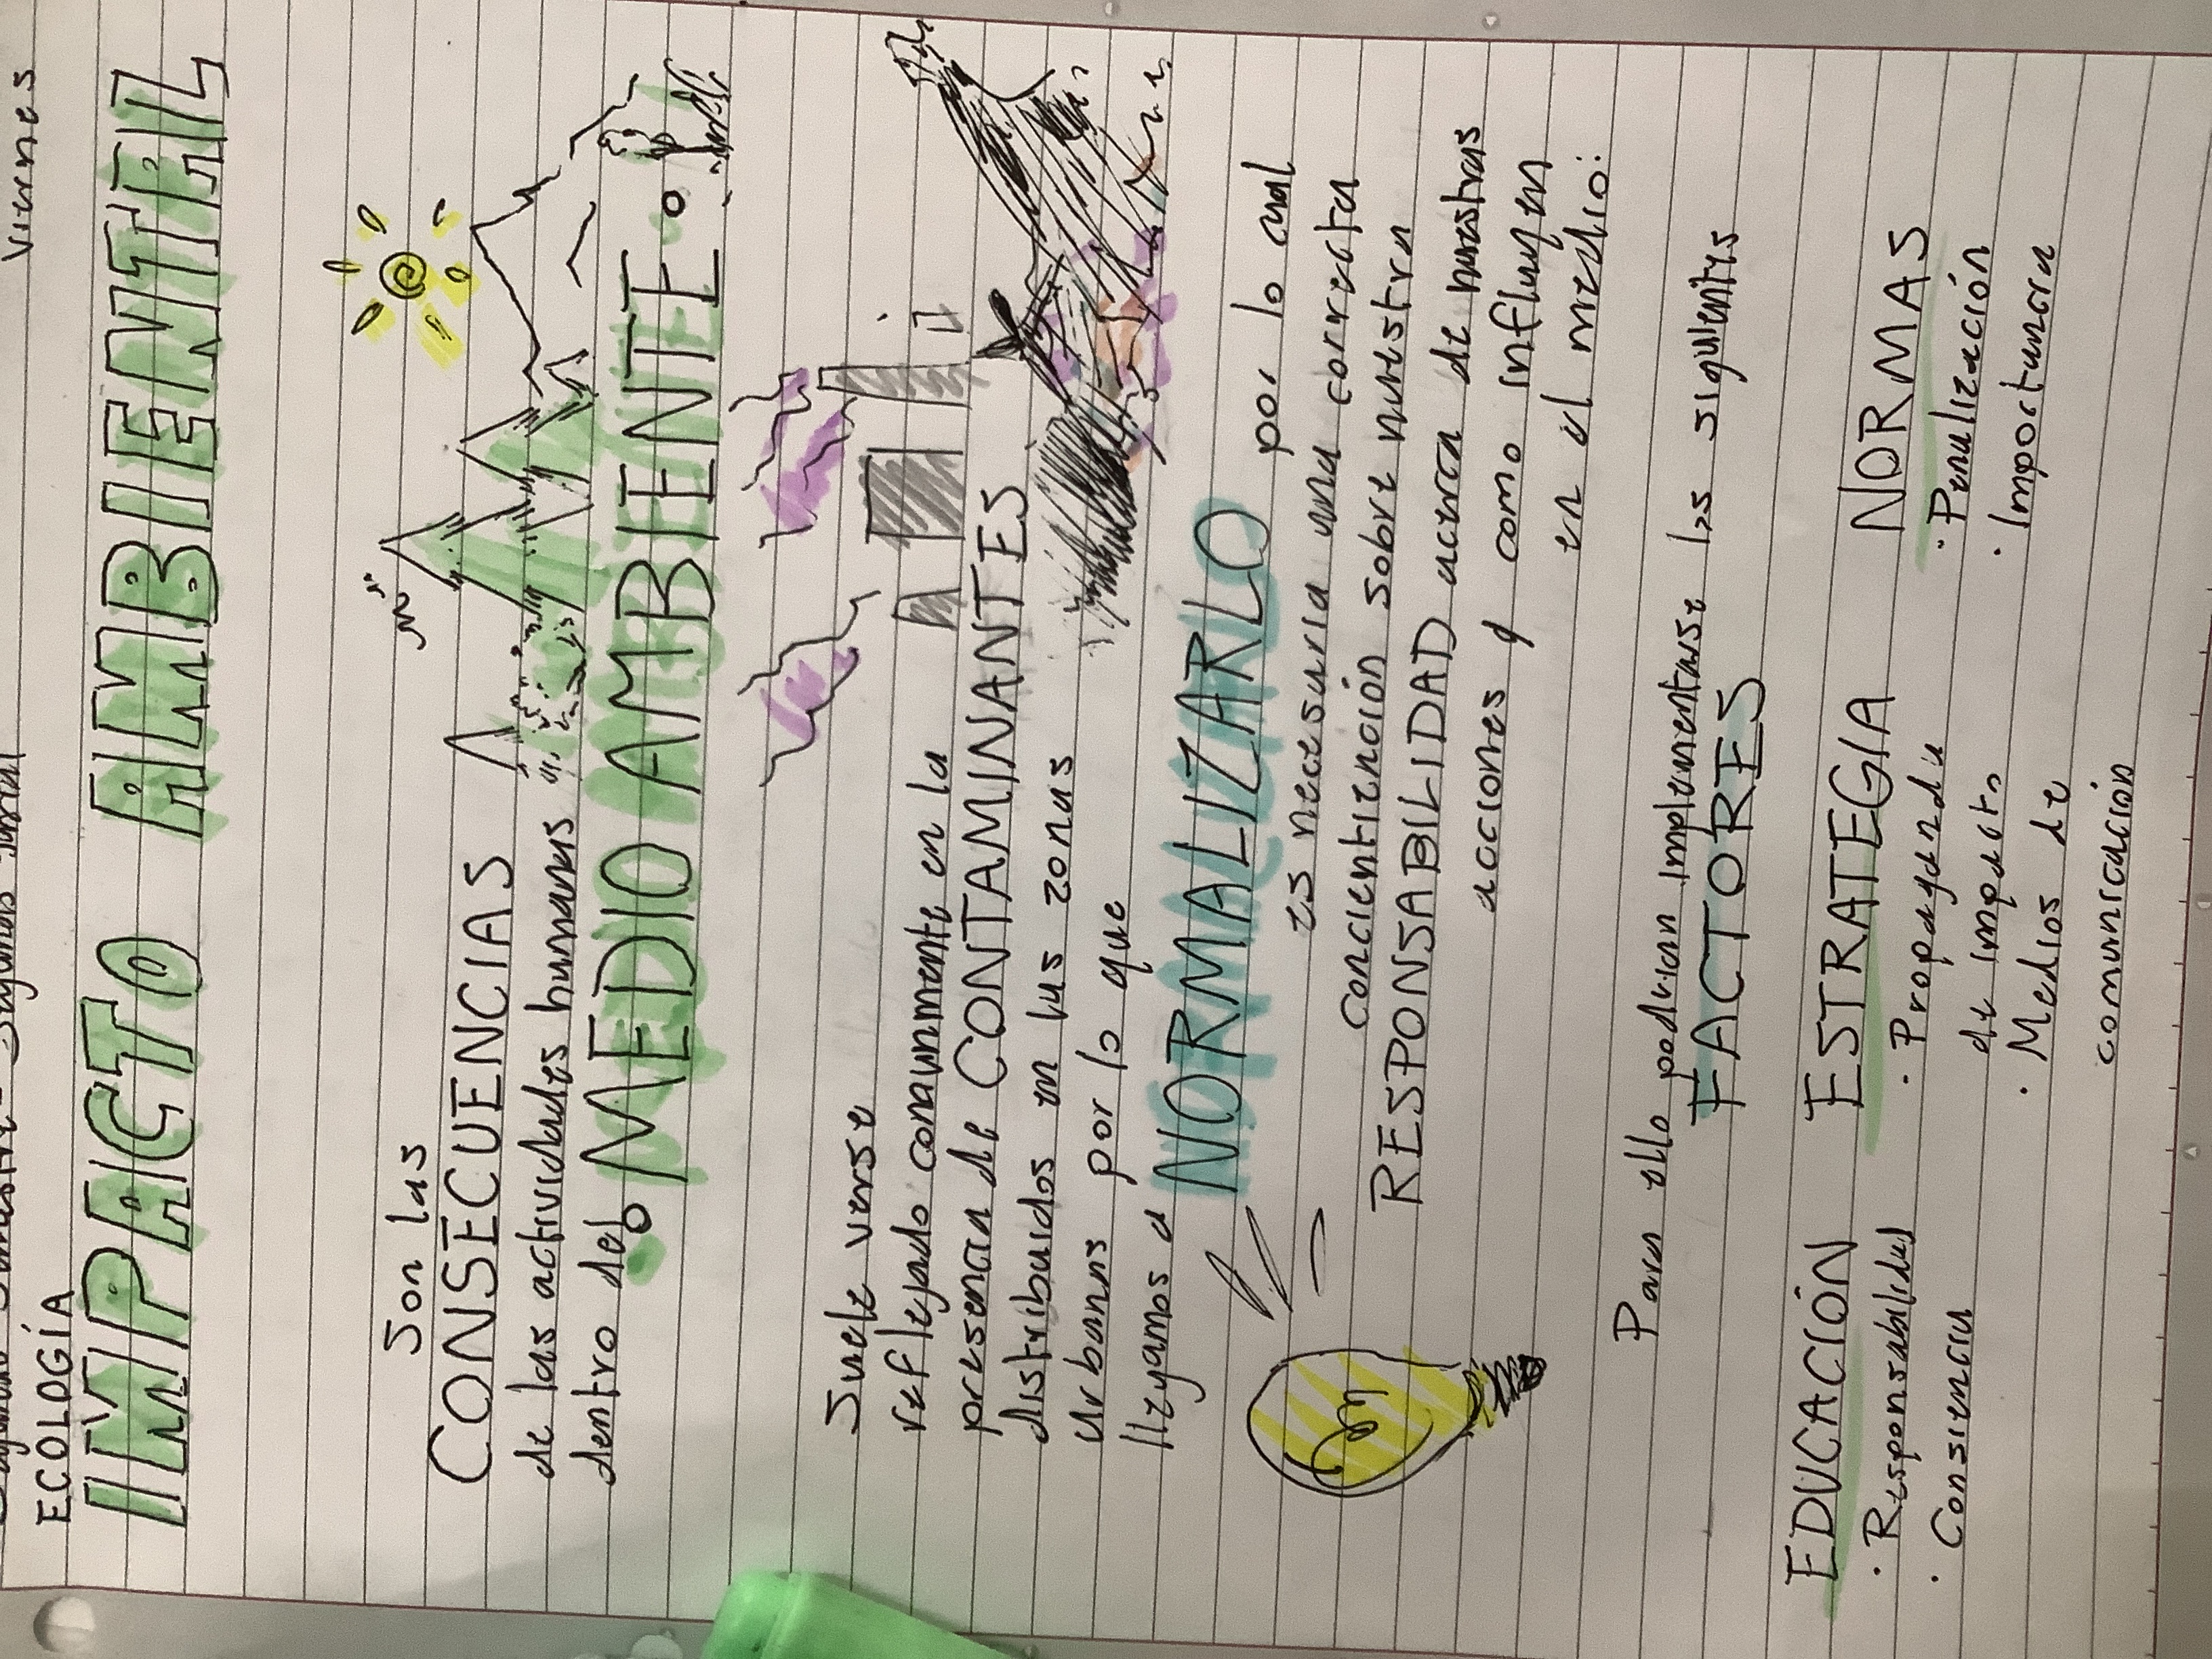 Viernes
ECOLOGÍA
IMPACTO AMBIENTAL
Son las
CONSECUENCIAS
de las actividades humanas
dentro del
MEDIO AMBIENTE
Suele verse
reflejado comunmente en la
presencia de CONTAMINANTES
distribuidos en las zonas
urbanas por lo que
llegamos a NORMALIZARLO por lo cual
es necesaria una correcta
concientización sobre nuestra
RESPONSABILIDAD acerca de nuestras
acciones y como influyen
en el medio:
Para ello podrian implementarse los siguientes
FACTORES
EDUCACIÓN ESTRATEGIA NORMAS
· Responsabilidad
· Consiencia
· Propaganda
de impacto
· Medios de
comunicación
· Penalización
· Importancia